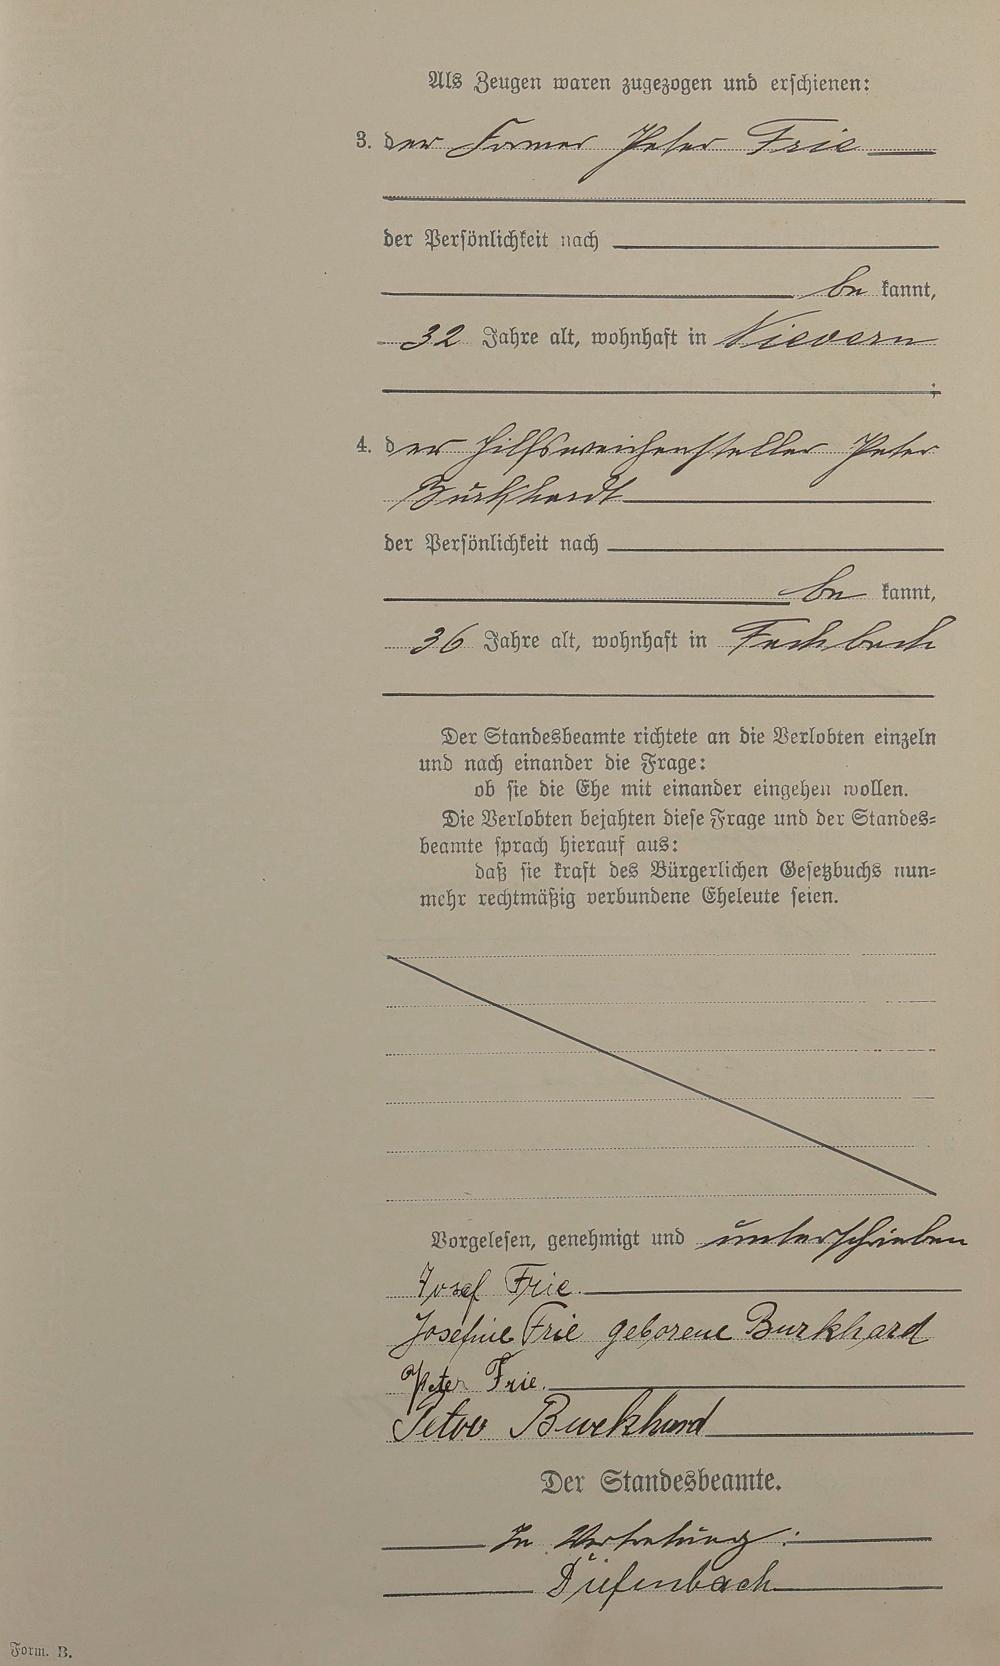 Als Zeugen waren zugezogen und erschienen:
3. der Former Peter Frie
der Persönlichkeit nach
be kannt,
32 Jahre alt, wohnhaft in Nievern
;
4. der Hilfsweichensteller Peter
Burkhardt
der Persönlichkeit nach
be kannt,
36 Jahre alt, wohnhaft in Fachbach
Der Standesbeamte richtete an die Verlobten einzeln
und nach einander die Frage:
ob sie die Ehe mit einander eingehen wollen.
Die Verlobten bejahten diese Frage und der Standes=
beamte sprach hierauf aus:
daß sie kraft des Bürgerlichen Gesetzbuchs nun=
mehr rechtmäßig verbundene Eheleute seien.
Vorgelesen, genehmigt und unterschrieben
Josef Frie.
Josefine Frie geborene Burkhard
Peter Frie.
Peter Burkhard
Der Standesbeamte.
In Vertretung:
Diefenbach
Form. B.